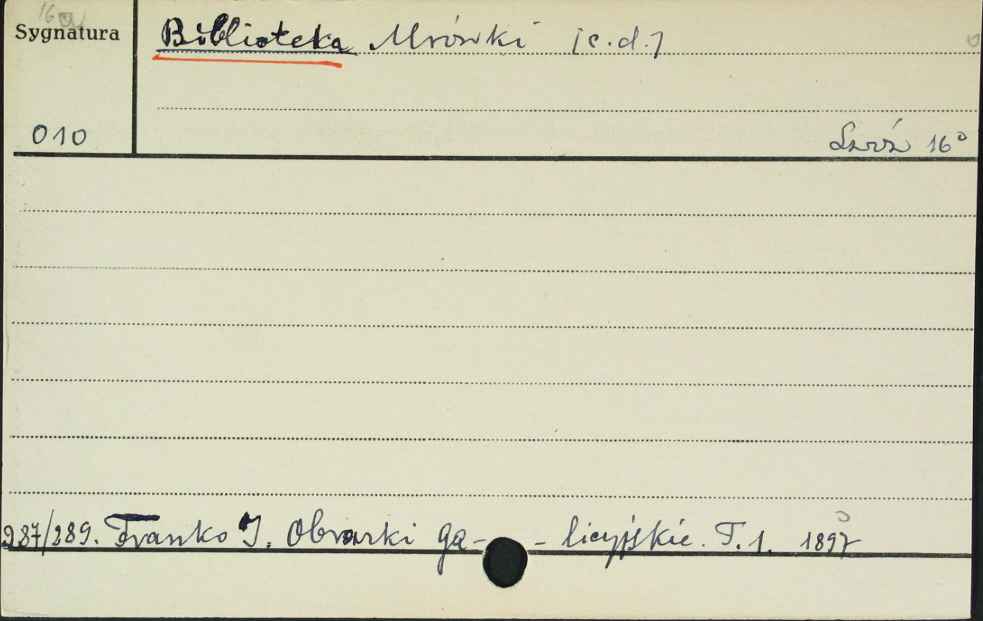 16
Sygnatura
Biblioteka Mrówki [c.d.]
010
16°
287/289. Franko I. Obrazki ga- - licyjskie. T. 1. 1897